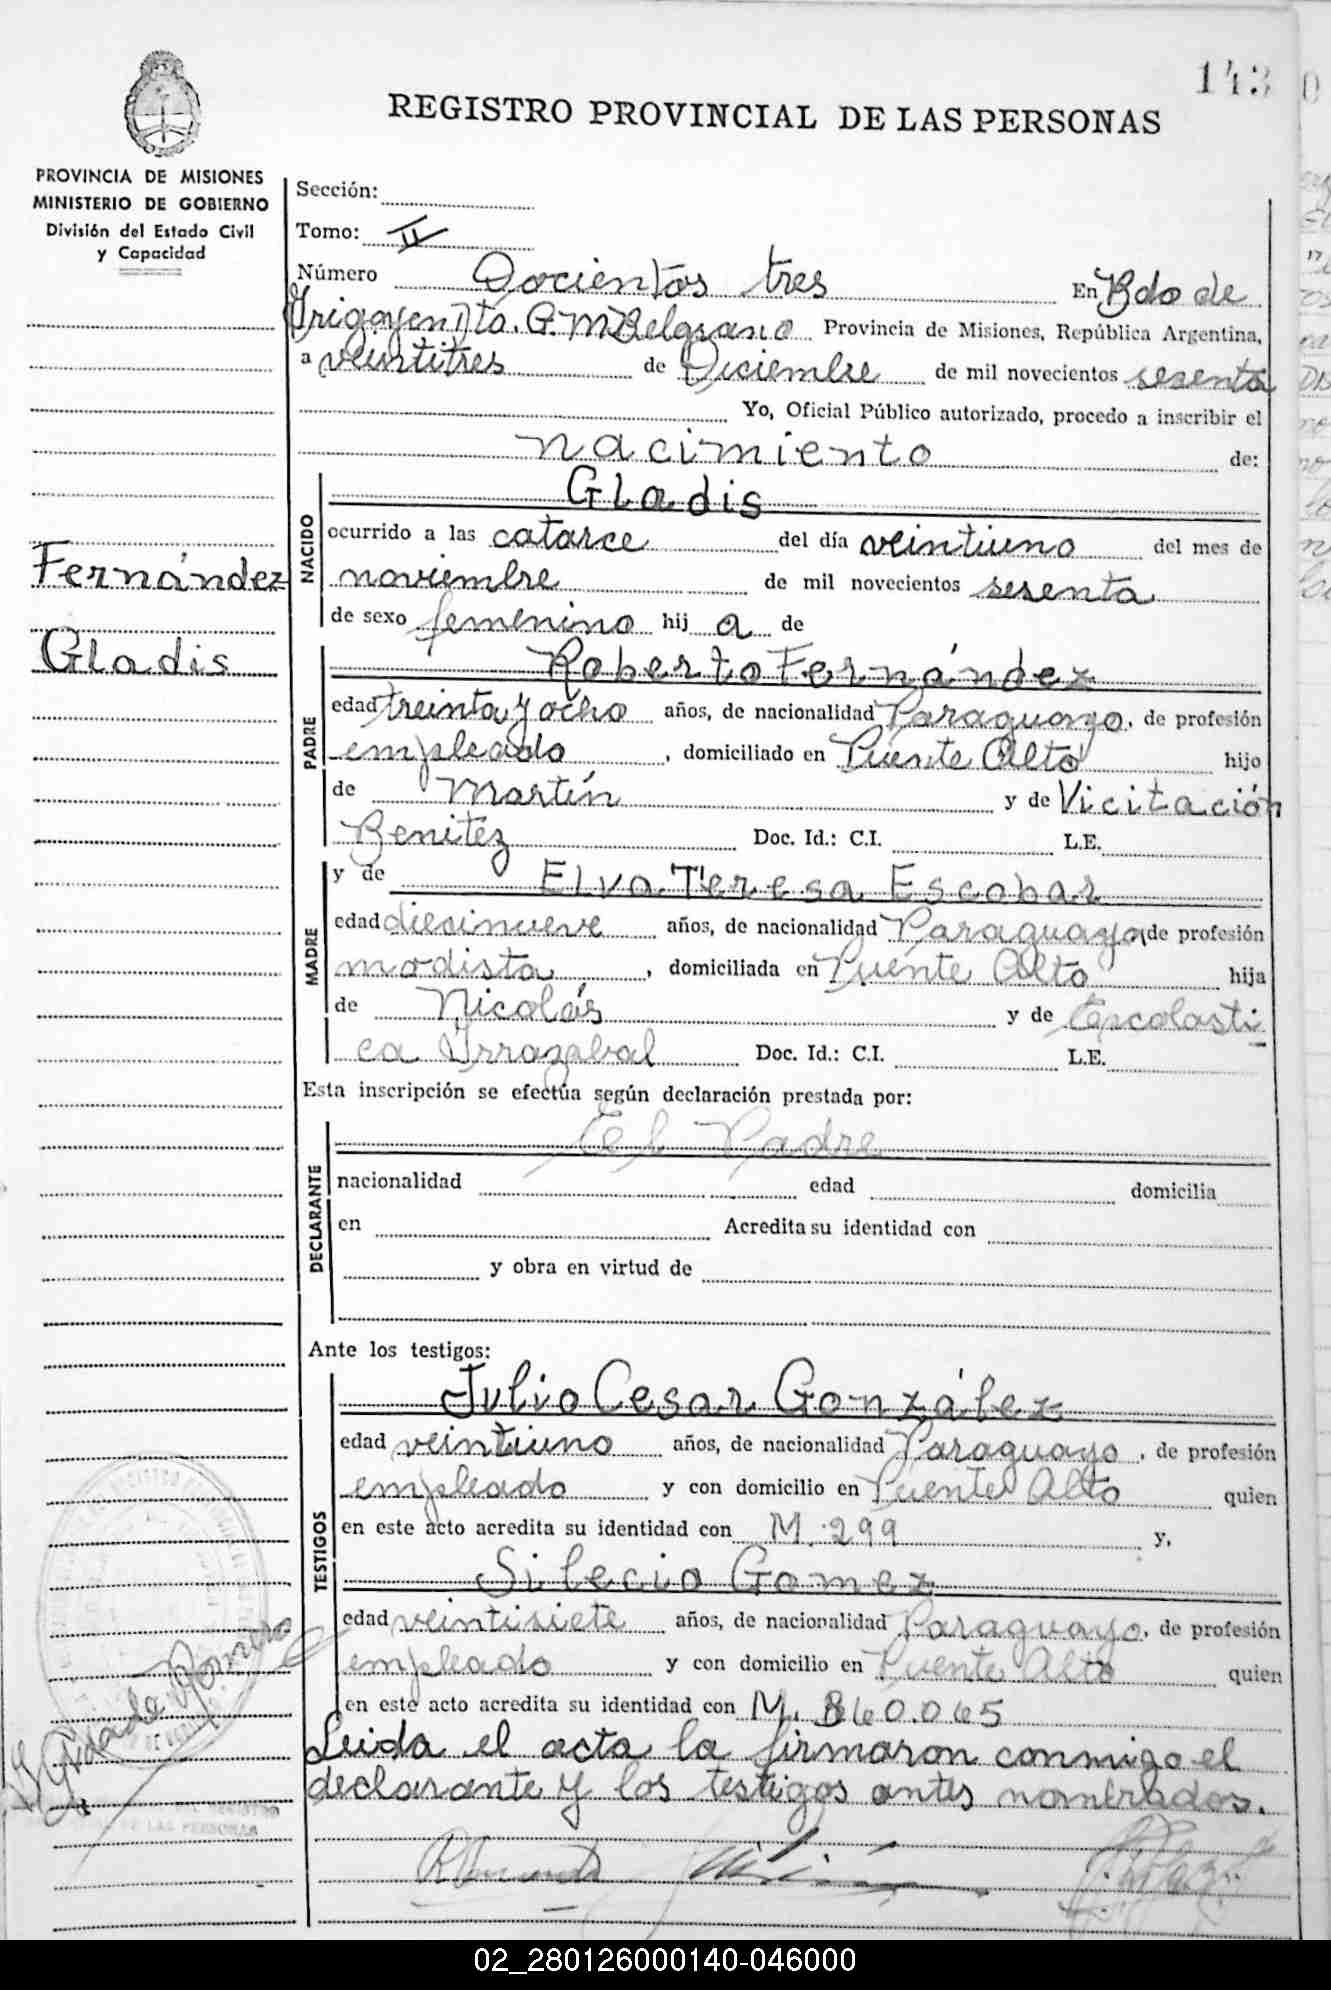 143
REGISTRO PROVINCIAL DE LAS PERSONAS
PROVINCIA DE MISIONES
MINISTERIO DE GOBIERNO
División del Estado Civil
y Capacidad
Fernández
Gladis
Sección:
Tomo: II
Número Docientos tres En Bdo de
Yrigoyen Dto. G. M Belgrano Provincia de Misiones, República Argentina,
a veintitres de Diciembre de mil novecientos sesenta
Yo, Oficial Público autorizado, procedo a inscribir el
nacimiento de:
NACIDO
Gladis
ocurrido a las catorce del día veintiuno del mes de
noviembre de mil novecientos sesenta
de sexo femenino hij a de
PADRE
Roberto Fernández
edad treinta y ocho años, de nacionalidad Paraguayo, de profesión
empleado, domiciliado en Puente Alto hijo
de Martín y de Vicitación
Benitez Doc. Id.: C.I. L.E.
MADRE
y de Elva Teresa Escobar
edad diecinueve años, de nacionalidad Paraguaya, de profesión
modista, domiciliada en Puente Alto hija
de Nicolás y de Escolasti
ca Yrrazabal Doc. Id.: C.I. L.E.
Esta inscripción se efectúa según declaración prestada por:
DECLARANTE
El Padre
nacionalidad edad domicilia
en Acredita su identidad con
y obra en virtud de
Ante los testigos:
TESTIGOS
Julio Cesar González
edad veintiuno años, de nacionalidad Paraguayo, de profesión
empleado y con domicilio en Puente Alto quien
en este acto acredita su identidad con M. 299 y,
Silecio Gomez
edad veintisiete años, de nacionalidad Paraguayo, de profesión
empleado y con domicilio en Puente Alto quien
en este acto acredita su identidad con M. 860.065
Leida el acta la firmaron conmigo el
declarante y los testigos antes nombrados.
02_280126000140-046000